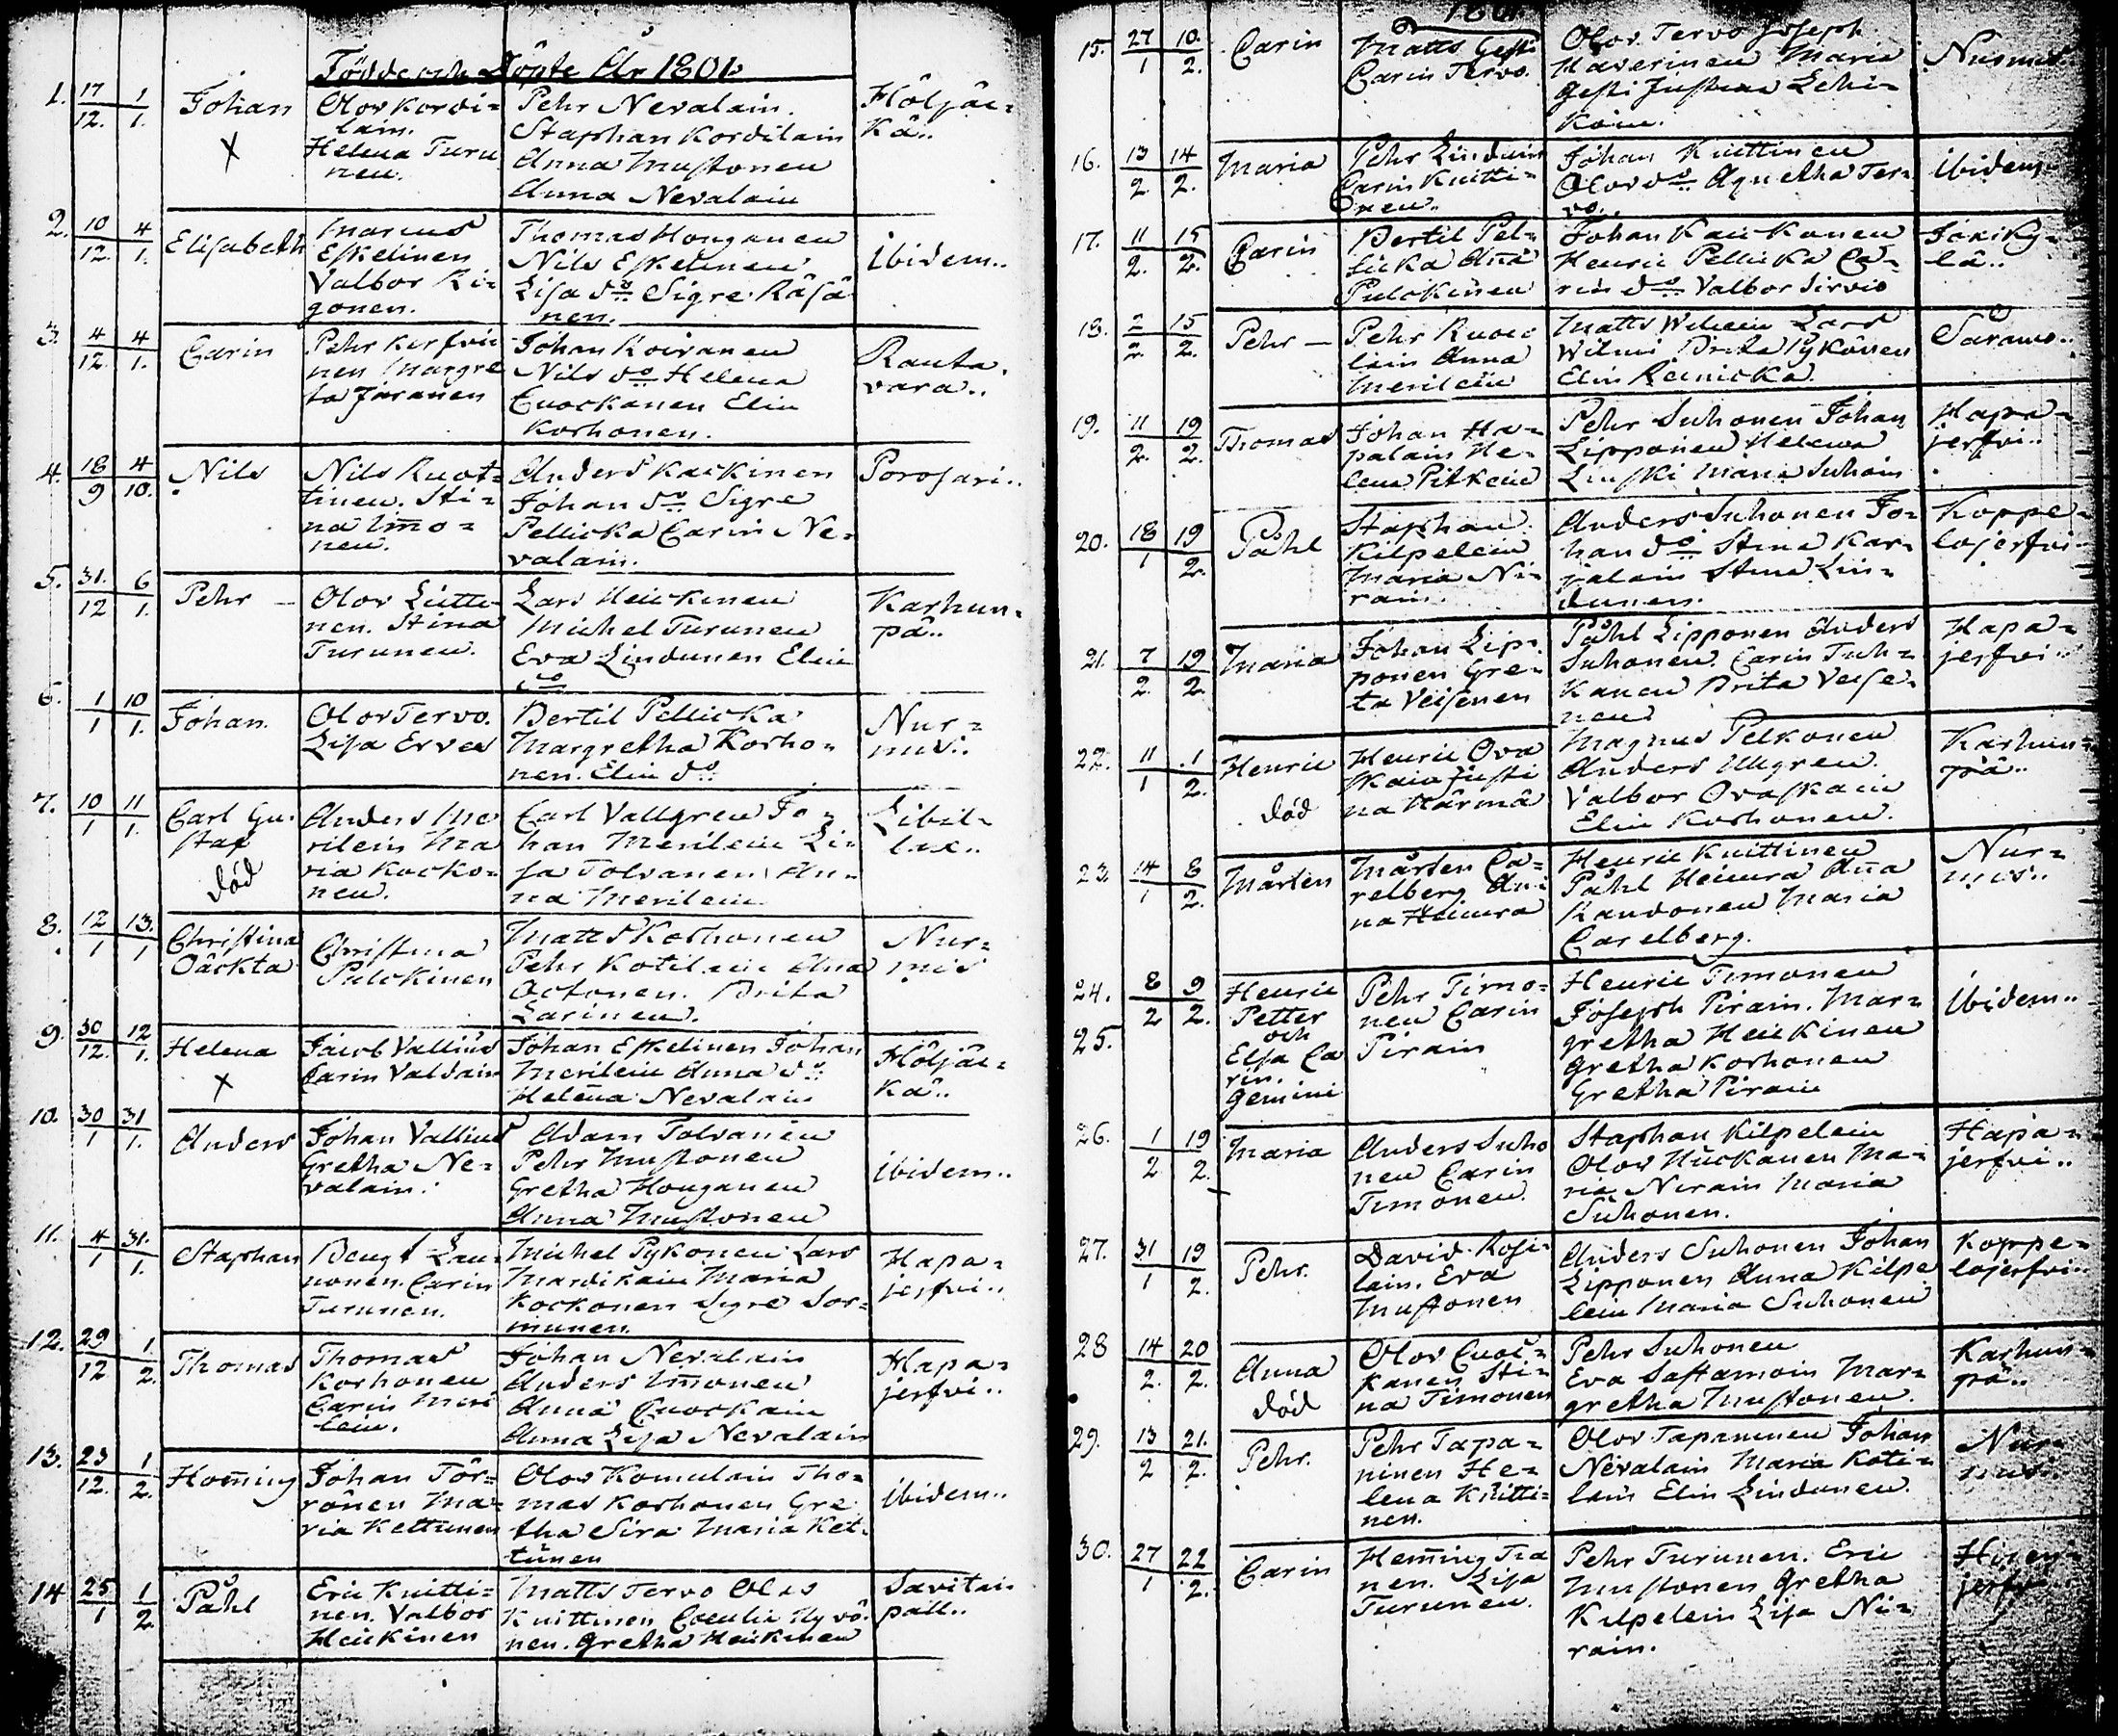 Födde och Döpte År 1801.
1. 17/12. 1/1. Johan X
Olov Kordi-
lain.
Helena Turu
nen.
Pehr Nevalain.
Staphan Kordilain
Anna Mustonen
Anna Nevalain
Höljäc-
kä..
2. 10/12. 4/1. Elisabeth
Marcus
Eskelinen
Valbor Ri-
gonen.
Thomas Honganen
Nils Eskelinen
Lisa do Sigre Räsä
nen.
Ibidem..
3. 4/12. 4/1. Carin
Pehr Kerfvi
nen Margre
ta Järanen
Johan Koivanen
Nils do Helena
Cuockanen Elin
Korhonen.
Rauta.
vara..
4. 18/9 4/10. Nils
Nils Ruot-
tinen. Sti-
na Imo-
nen.
Anders Kackinen
Johan do Sigre
Pellicka Carin Ne-
valain.
Porosari..
5. 31./12 6/1. Pehr —
Olov Lutti-
nen. Stina
Turunen.
Lars Heickinen
Michel Turunen
Eva Lindunen Elin
do
Karhun-
pä..
6. 1/1 10/1. Johan.
Olov Tervo.
Lisa Erves
Bertil Pellicka
Margretha Korho-
nen. Elin do
Nur-
mis..
7. 10/1 11/1. Carl Gu-
staf
död
Anders Me
rilein Ma
ria Kocko-
nen.
Carl Vallgren Jo-
han Merilein Li-
sa Tolvanen An-
na Merilein.
Libil-
lax..
8. 12/1 13./1 Christina
Oäckta
Christina
Pulckinen
Matts Korhonen
Pehr Kotilain Ana
Octonen. Brita
Larinen.
Nur-
mis
9. 30/12. 12/1. Helena X
Jacob Vallius
Carin Valdain
Johan Eskelinen Johan
Merilein Anna do
Helena Nevalain
Höljäc-
kä..
10. 30/1 31/1. Anders
Johan Vallius
Gretha Ne-
valain.
Adam Tolvanen
Pehr Mustonen
Gretha Honganen
Anna Mustonen
Ibidem..
11. 4/1 31./1. Staphan
Bengt Lau-
nonen. Carin
Turunen.
Michel Pykonen Lars
Mardikain Maria
Kockonen Sigre Sor-
munen.
Hapa-
jerfvi..
12. 29/12 1./2. Thomas
Thomas
Korhonen
Carin Meri
lein.
Johan Nevalain
Anders Imonen
Anna Cuockain
Anna Lisa Nevalain
Hapa-
jerfvi..
13. 23/12. 1/2. Heming
Johan Tör-
rönen Ma-
ria Kettunen
Olov Komulain Tho-
mas Korhonen Gre
tha Sira Maria Ket-
tunen
Ibidem..
14 25/1 1/2. Påhl
Eric Knitti-
nen. Valbor
Heickinen
Matts Tervo Olos
Knittinen Coecilia Hyvö-
nen. Gretha Heickinen
Savitai-
pall..
1801.
15. 27/1 10./2. Carin
Matts Gesti
Carin Tervo.
Olov Tervo Joseph
Haverinen Maria
Gesti Justina Lehi-
koin.
Nurmis
16. 13/2. 14/2. Maria
Pehr Lindunen
Carin Knitti-
nen..
Johan Knittinen
Olov do Agnetha Ter-
vo.
Ibidem.
17. 11/2. 15/2. Carin
Bertil Pel-
licka Ana
Pulckinen
Johan Kauckonen
Henric Pellicka Ca-
rin do Valbor Sirvio
Jokiky-
lä..
18. 2/2. 15/2. Pehr —
Pehr Ruoco
lain Anna
Merilein
Matts Wilmin Lars
Wilmi Brita Pykönen
Elin Reinicka.
Saramo..
19. 11/2. 19/2. Thomas
Johan Ha-
palain He-
lena Pitkein
Pehr Suhonen Johan
Lipponen Helena
Linski Maria Suhoin
Hapa-
jerfvi..
20. 18/1 19/2. Påhl
Staphan
Kilpelein
Maria Ni-
rain.
Anders Suhonen Jo-
han do Stina Kar-
jalain Stina Lin-
dunen.
Koppe-
lojerfvi..
21. 7/2. 19/2. Maria
Johan Lip-
ponen Gre-
ta Veisenen
Påhl Lipponen Anders
Suhonen. Carin Tuh-
kanen Brita Veise-
nen
Hapa-
jerfvi..
22. 11/1 1/2. Henric
död
Henric Ova
skain Justi
na Härmä
Magnus Pelkonen
Anders Ullgren.
Valbor Ovaskain
Elin Korhonen.
Karhun-
pä..
23. 14/1 8/2. Mårten
Mårten Ca-
relberg An-
na Heinura
Henric Knittinen
Påhl Heinura Ana
Raudonen Maria
Carelberg.
Nur-
mis..
24. 8/2 9/2. Henric
Petter
och
25. Elsa Ca
rin.
Gemini
Pehr Timo-
nen Carin
Pirain
Henric Timonen
Joseph Pirain. Mar-
gretha Heickinen
Gretha Korhonen
Gretha Pirain
Ibidem..
26. 1/2 19/2. Maria
Anders Suho
nen Carin
Timonen.
Staphan Kilpelein
Olov Huckanen Ma-
ria Nirain Maria
Suhonen.
Hapa-
jerfvi..
27. 31/1 19/2. Pehr.
David Rosi-
lain. Eva
Mustonen
Anders Suhonen Johan
Lipponen Anna Kilpe
lein Maria Suhonen
Koppe-
lojerfvi..
28 14/2. 20/2. Anna
död
Olov Cuoc-
kanen Sti-
na Timonen
Pehr Suhonen
Eva Sastamoin Mar-
gretha Mustonen.
Karhun-
pä..
29. 13/2 21./2. Pehr.
Pehr Tapa-
ninen He-
lena Knitti-
nen.
Olov Tapaninen Johan
Nevalain Maria Koti-
lain Elin Lindunen.
Nur-
mis
30. 27/1 22/2. Carin
Heming Tia
nen. Lisa
Turunen.
Pehr Turunen. Eric
Mustonen Gretha
Kilpelein Lisa Ni-
rain.
jerfvi